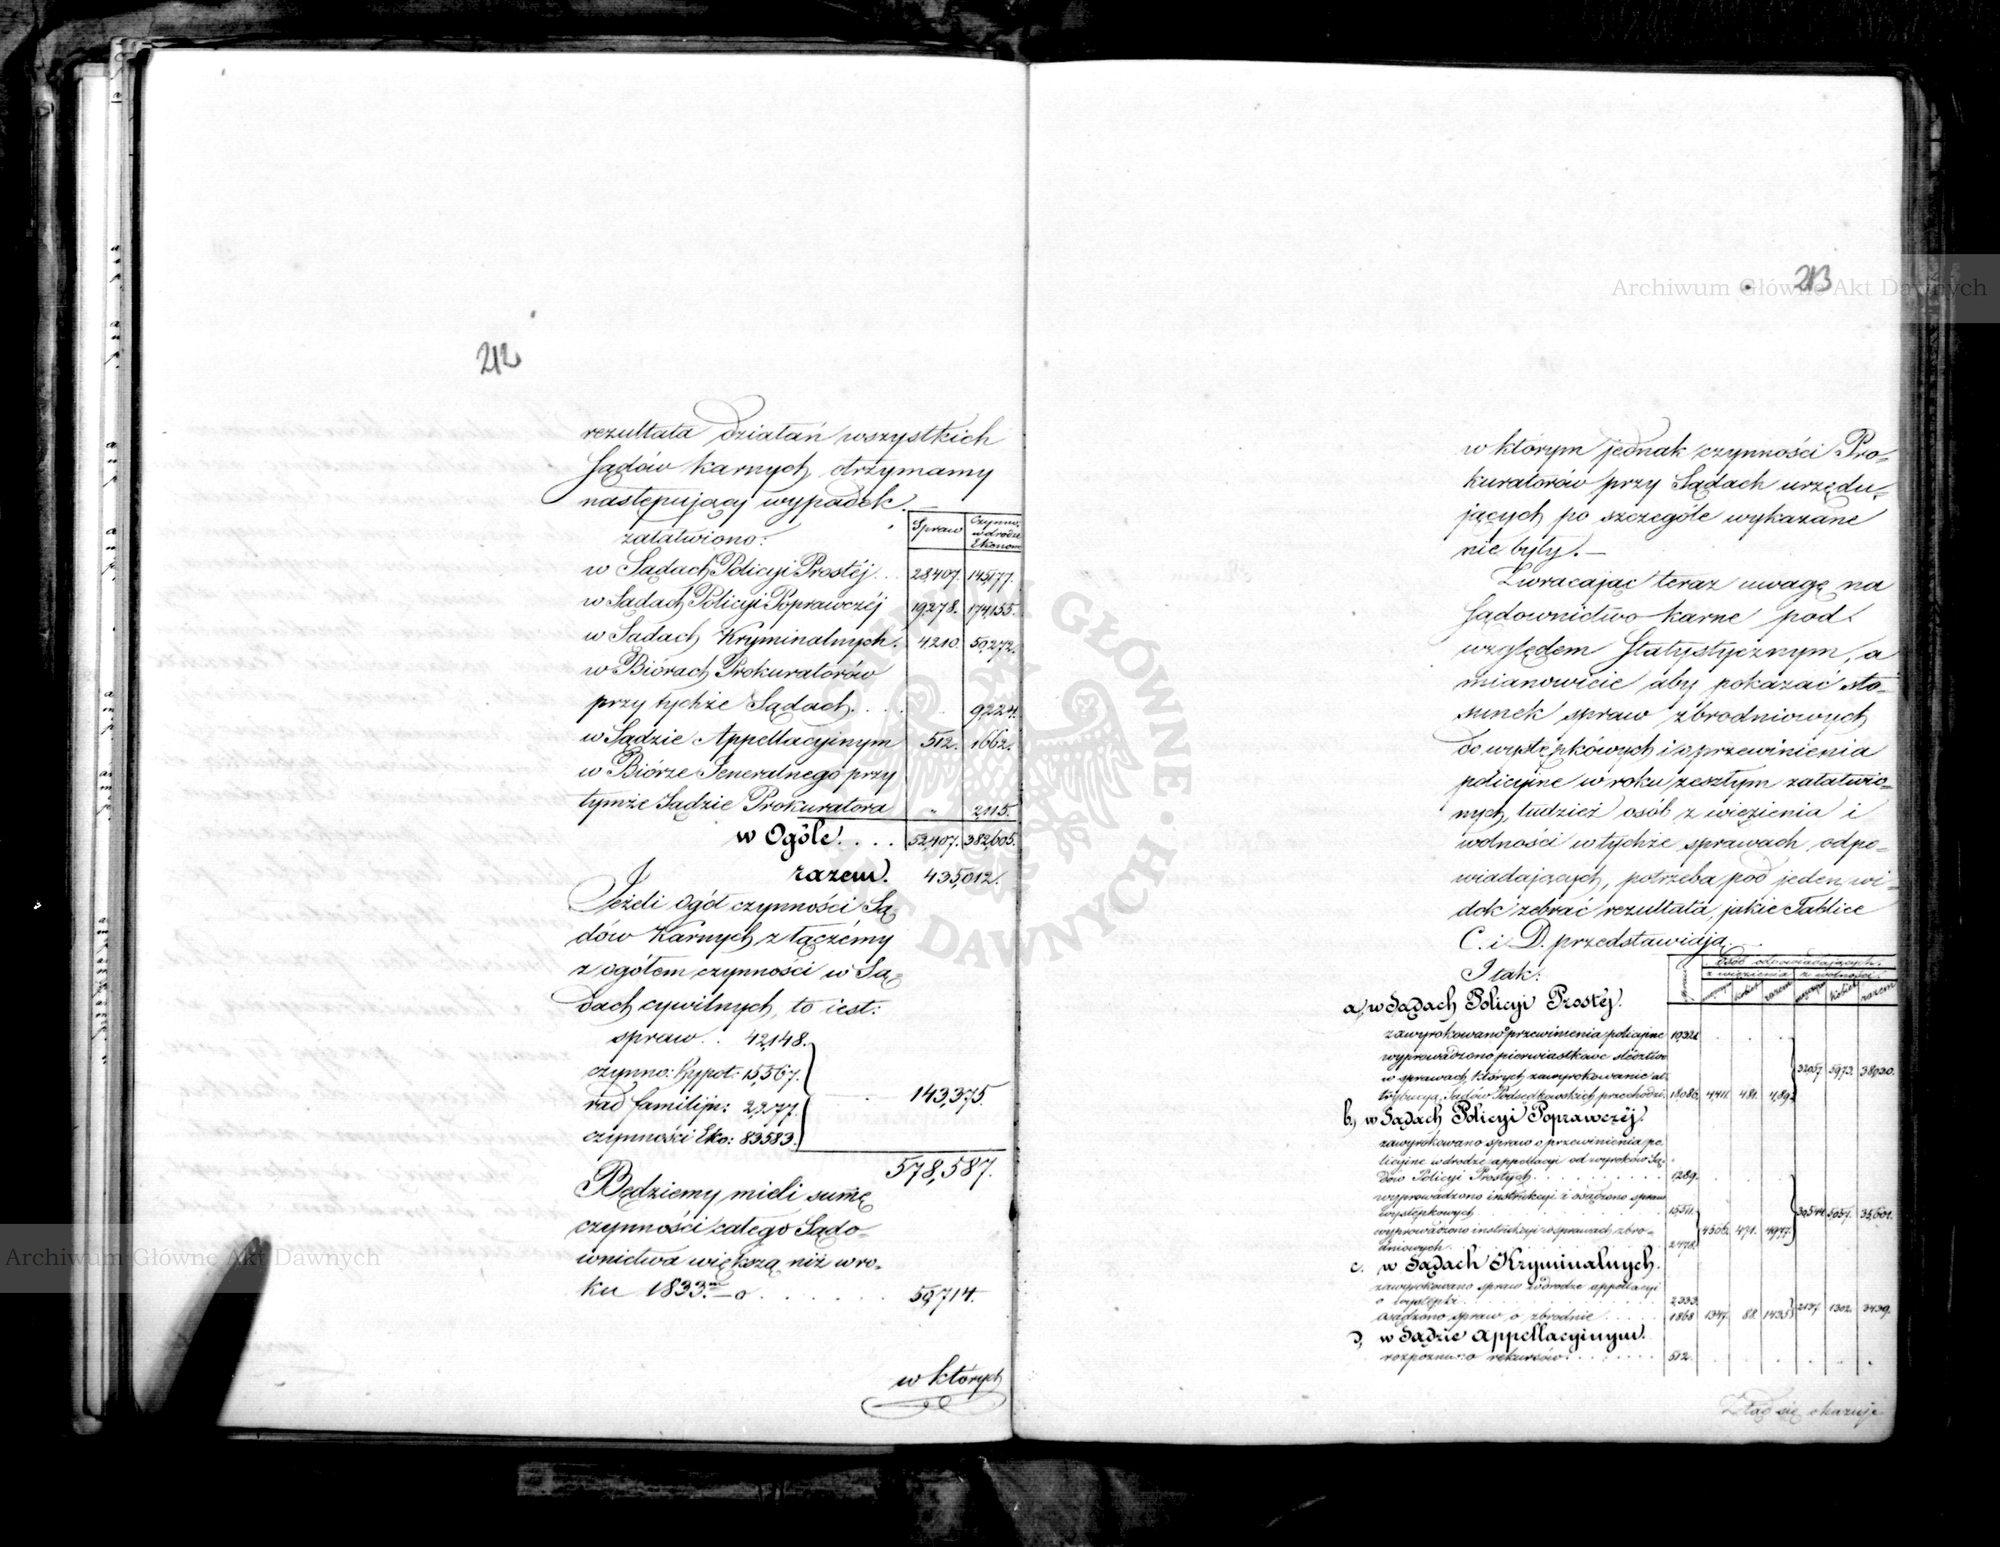 212
rezultata działań wszystkich
Sądów karnych, otrzymamy
następujący wypadek.
Spraw Czynno: w drodze Ekonom:
załatwiono:
w Sądach Policyi Prostéj.. 28,407. 145,177.
w Sądach Policyi Poprawczéj 19,278. 174,155.
w Sądach Kryminalnych. 4,210. 50,272.
w Biórach Prokuratorów
przy tychże Sądach. . . . 9,224.
w Sądzie Appellacyinym 512. 1,662.
w Biórze Generalnego przy
tymże Sądzie Prokuratora „ 2,115.
w Ogóle. . . . 52,407. 382,605.
razem. 435,012.
Jeżeli ogół czynności Są-
dów Karnych złączémy
z ogółem czynności w Są-
dach cywilnych, to iest:
spraw . . 42,148.
czynno: hypot: 15,567.
143,375.
rad familijn: 2,277.
czynności Eko: 83,583.
578,587.
Będziemy mieli summę
czynności całego Sądo-
wnictwa większą niż w ro-
ku 1833.m o . . . . . . 59,714.
w których
213
w którym jednak czynności Pro-
kuratorów przy Sądach urzędu-
jących po szczególe wykazane
nie były. —
Zwracając teraz uwagę na
Sądownictwo karne pod
względem Statystycznym, a
mianowicie aby pokazać sto-
sunek spraw zbrodniowych
do występkówych i o przewinienia
policyjne w roku zeszłym załatwio-
nych, tudzież osób z więzienia i
wolności w tychże sprawach odpo-
wiadających, potrzeba pod jeden wi-
dok zebrać rezultata, jakie Tablice
C. i D. przedstawiają.
Osób odpowiadających.
z więzienia z wolności
mężczyzn kobiet razem mężczyzn kobiet razem
I tak:
a, w Sądach Policyi Prostéj.
zawyrokowano przewinienia policyine
wyprowadzono pierwiastkowe śledztwa
w sprawach, których zawyrokowanie at-
32,057. 5,973. 38,030.
trybucyą Sądów Podsędkowskich przechodzi. 18,086. 4,411. 481. 4,892.
b, w Sądach Policyi Poprawczéj.
zawyrokowano spraw o przewinienia po-
licyine w drodze appellacyi od wyroków Są-
dów Policyi Prostych . . . . 1289.
wyprowadzono instrukcyi i osądzono spraw
występkowych . . . . 15,511.
wyprowadzono instrukcyi w sprawach zbro-
4506. 471. 4977.
dniowych . . . . 2478.
c. w Sądach Kryminalnych.
zawyrokowano spraw w drodze appellacyi
o występki . . . . 2333.
osądzono spraw o zbrodnie . . . . 1868 1347. 88. 1435. 2137. 1302. 3439.
d, w Sądzie Appellacyinym.
rozpoznano rekursów . . . . 512.
Ztąd się okazuje
Archiwum Główne Akt Dawnych
Archiwum Główne Akt Dawnych